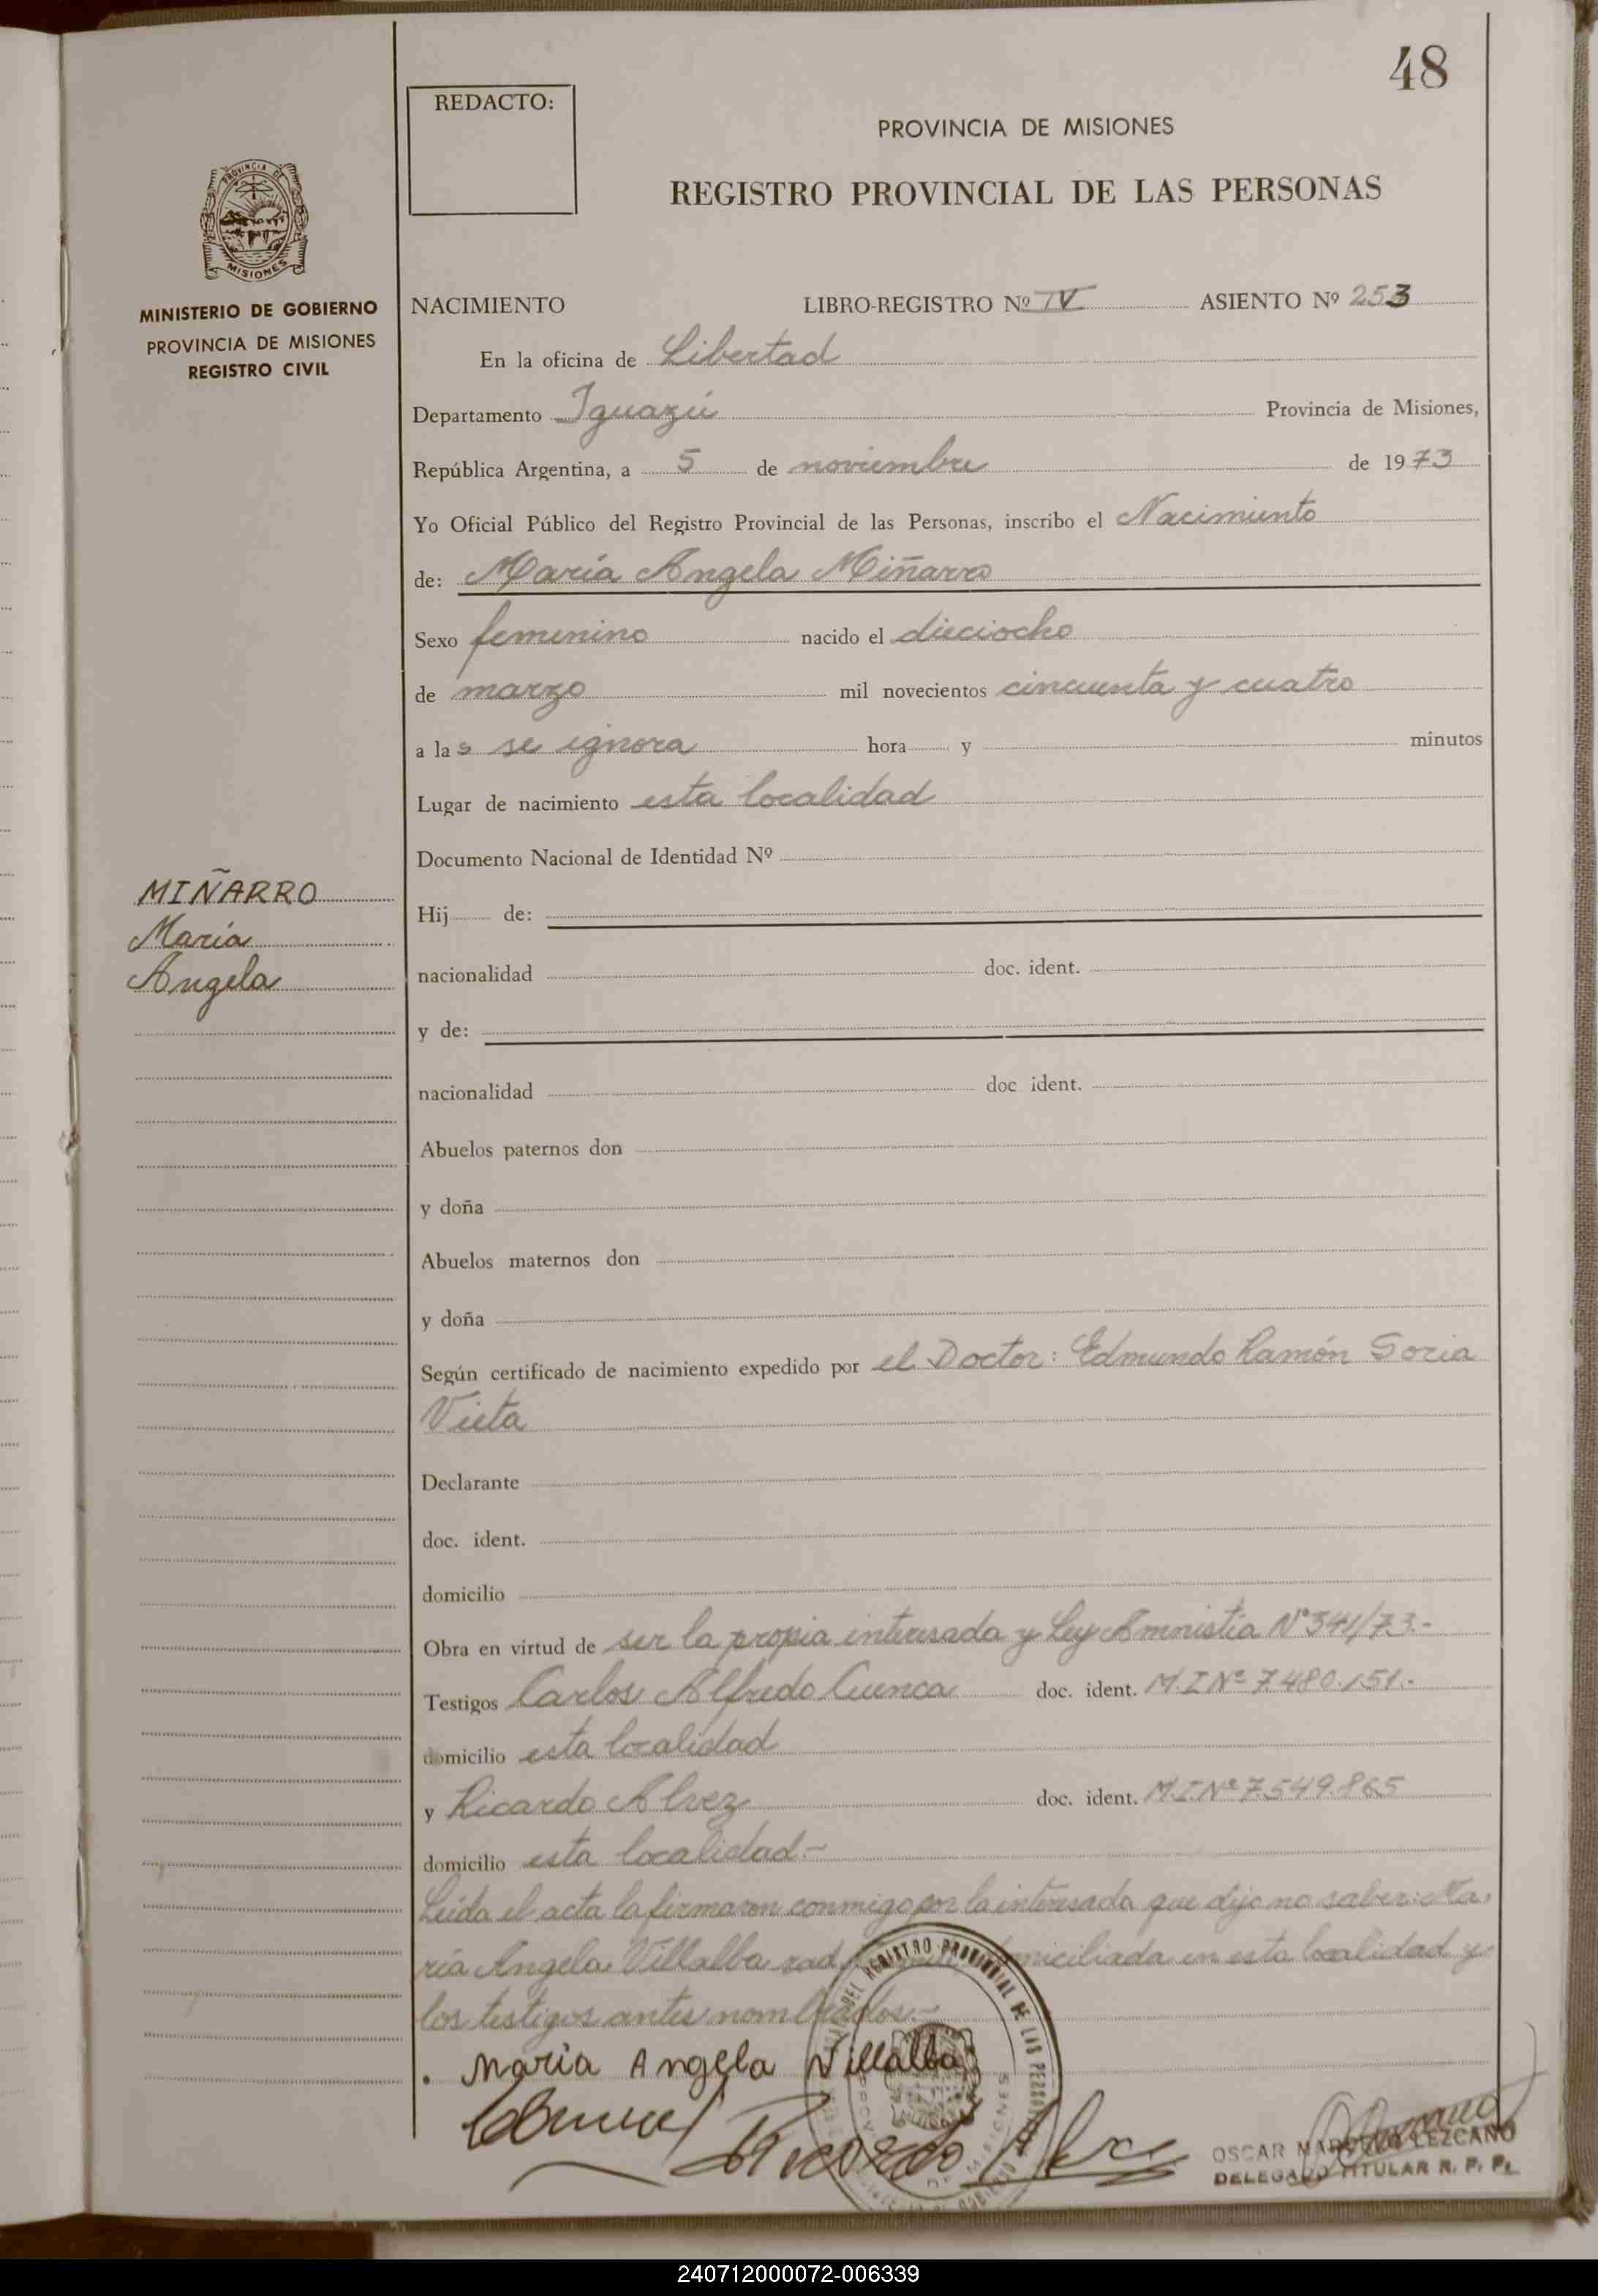 48
REDACTO:
PROVINCIA DE MISIONES
REGISTRO PROVINCIAL DE LAS PERSONAS
PROVINCIA DE
MISIONES
MINISTERIO DE GOBIERNO
PROVINCIA DE MISIONES
REGISTRO CIVIL
NACIMIENTO LIBRO-REGISTRO Nº IV ASIENTO Nº 253
En la oficina de Libertad
Departamento Iguazú Provincia de Misiones,
República Argentina, a 5 de noviembre de 1973
Yo Oficial Público del Registro Provincial de las Personas, inscribo el Nacimiento
de: María Angela Miñarro
Sexo femenino nacido el dieciocho
de marzo mil novecientos cincuenta y cuatro
a las se ignora hora y minutos
Lugar de nacimiento esta localidad
Documento Nacional de Identidad Nº
MIÑARRO
María
Angela
Hij de:
nacionalidad doc. ident.
y de:
nacionalidad doc ident.
Abuelos paternos don
y doña
Abuelos maternos don
y doña
Según certificado de nacimiento expedido por el Doctor: Edmundo Ramón Soria
Vieta
Declarante
doc. ident.
domicilio
Obra en virtud de ser la propia interesada y Ley Amnistía Nº 341/73.-
Testigos Carlos Alfredo Cuenca doc. ident. M.I Nº 7.480.151.-
domicilio esta localidad
y Ricardo Alvez doc. ident. M.I.Nº 7.549.865
domicilio esta localidad.-
Leída el acta la firmaron conmigo por la interesada que dijo no saber: Ma-
ría Angela Villalba domiciliada en esta localidad y
los testigos antes nombrados.-
María Angela Villalba
Ricardo Alvez
DEL REGISTRO PROVINCIAL DE LAS PERSONAS
OSCAR LEZCANO
DELEGADO TITULAR R. P. P.
240712000072-006339